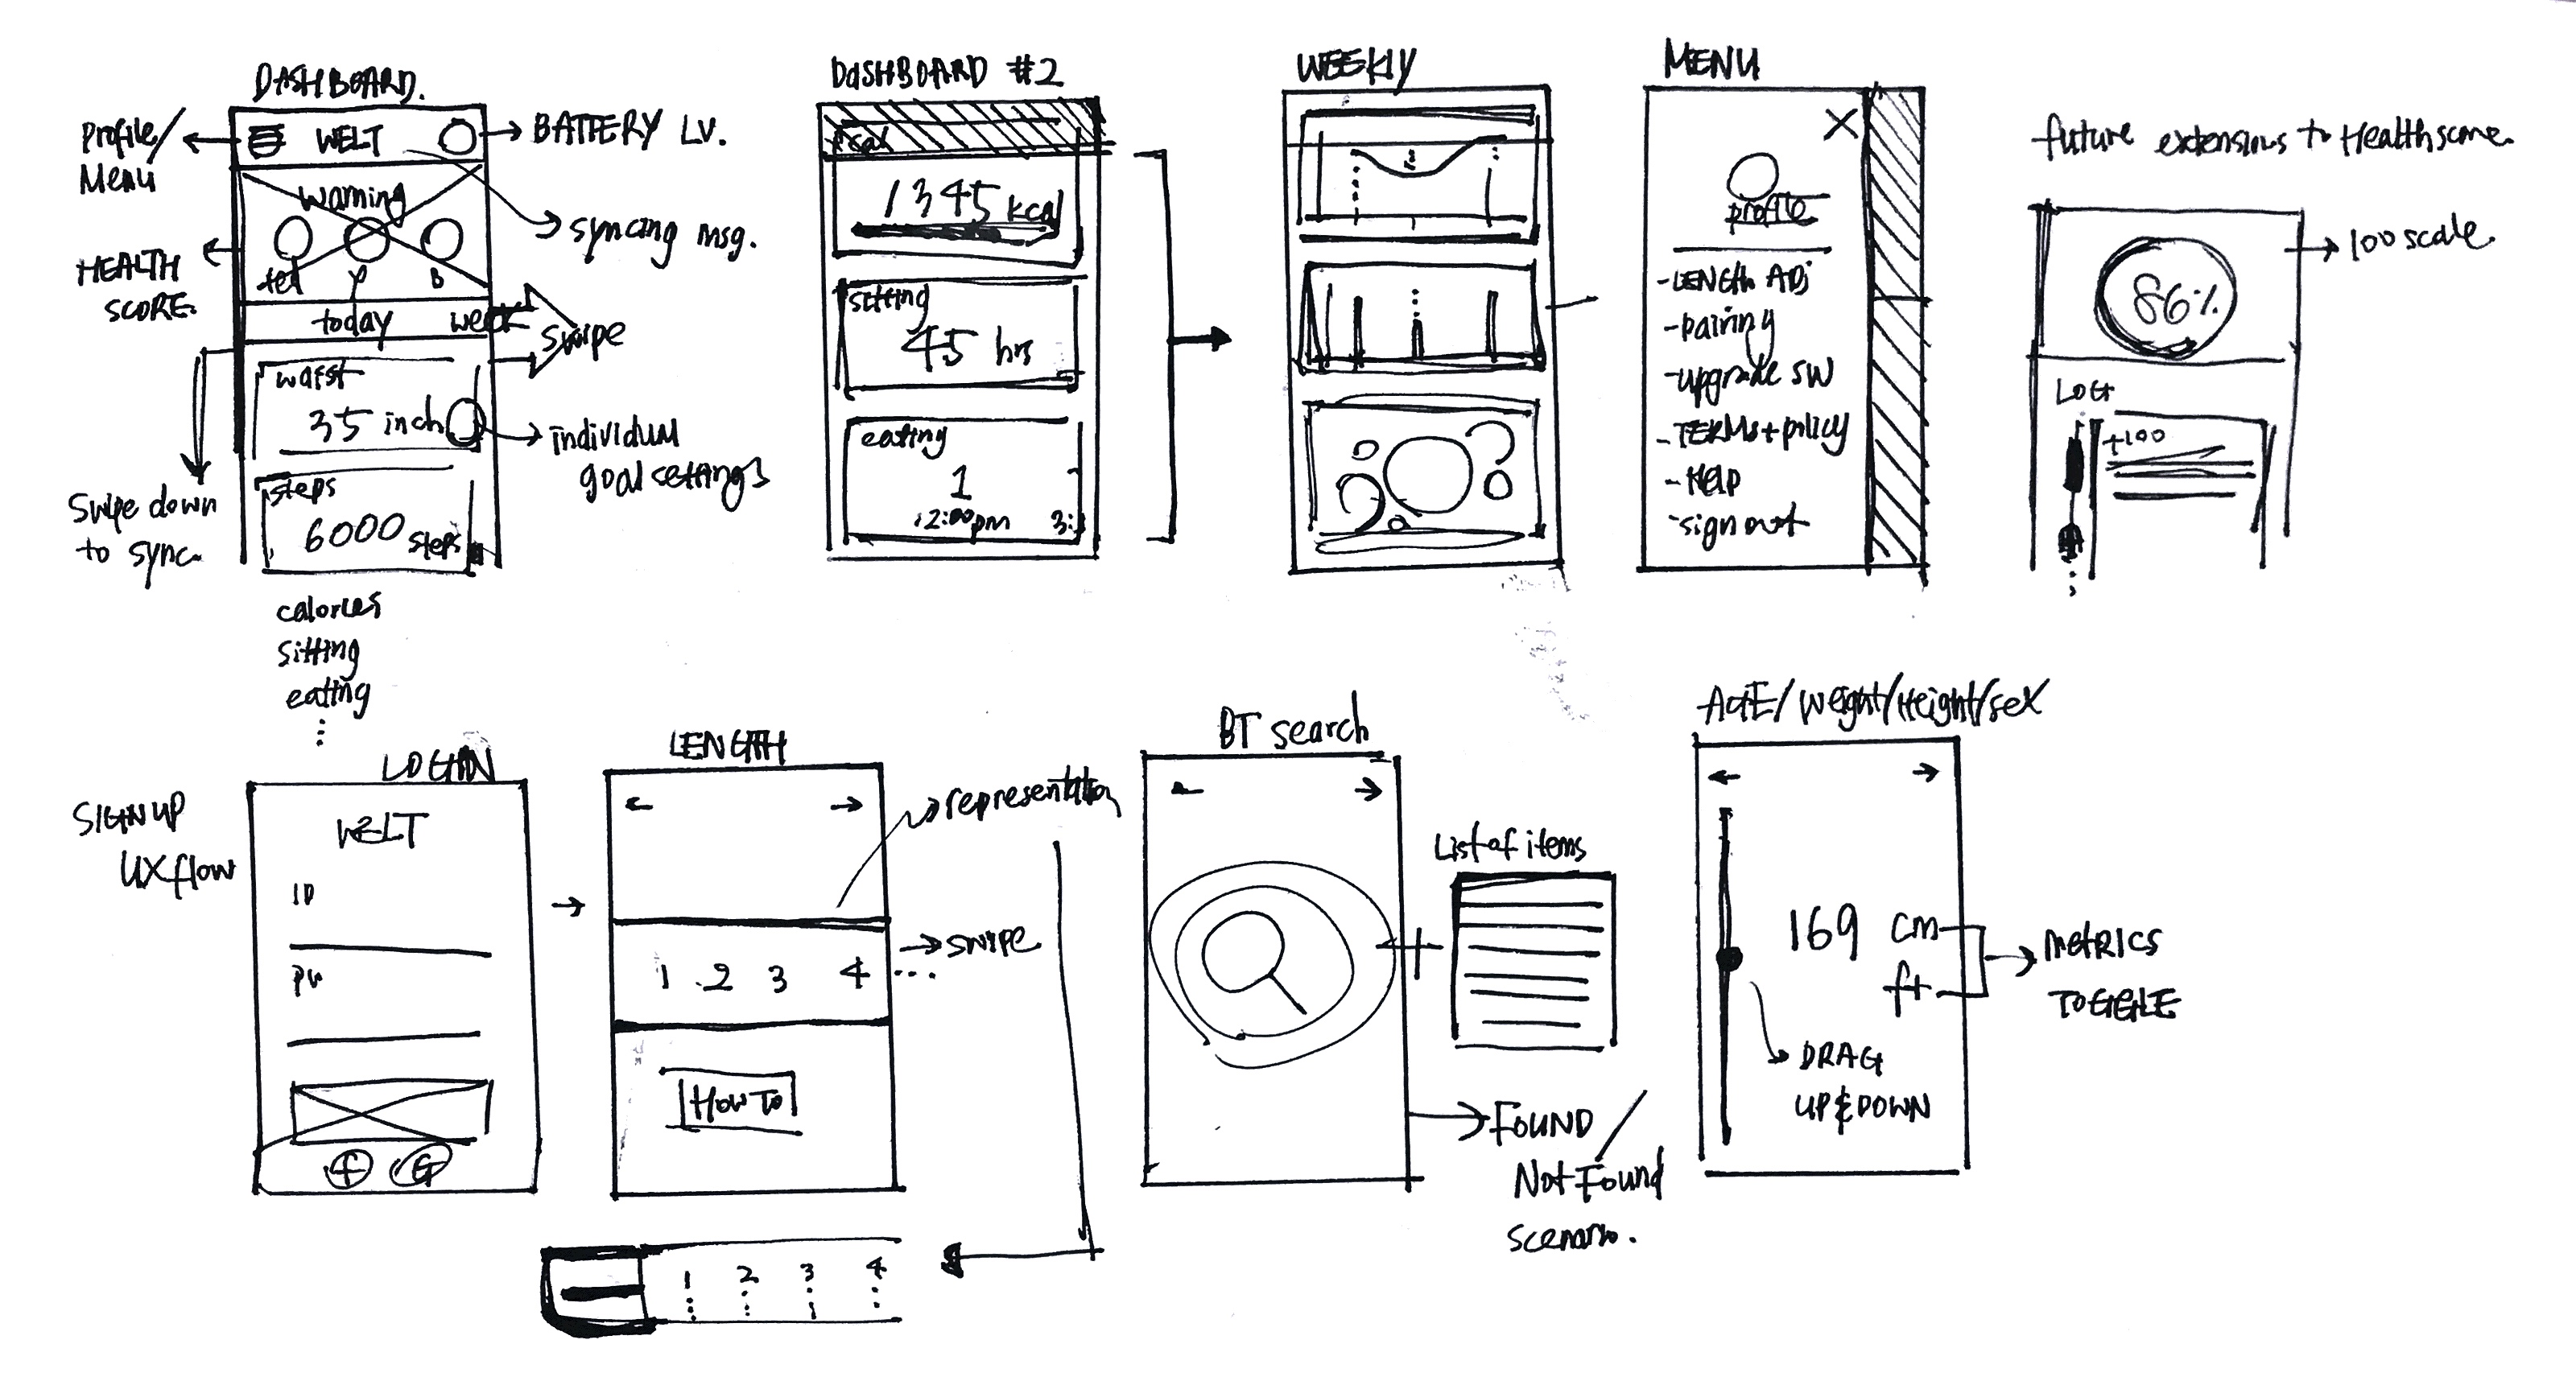 DASHBOARD.
Profile/
Menu
WELT
BATTERY LV.
Warning
syncing msg.
HEALTH
SCORE.
B
today
week
swipe
waist
35 inch
individual
goal settings
steps
6000 steps
Swipe down
to sync.
calories
sitting
eating
DASHBOARD #2
kcal
1345 kcal
sitting
45 hrs
eating
1
12:00pm 3:
WEEKLY
MENU
X
profile
-LENGTH ADJ
-pairing
-upgrade SW
-TERMS+policy
-Help
-sign out
future extensions to Healthscore.
100 scale.
86%
LOG
+100
SIGN UP
UX flow
LOGIN
WELT
ID
PW
f G
LENGTH
representation
1 2 3 4 ...
swipe
HOW TO
1 2 3 4
BT search
List of items
FOUND /
Not Found
scenario.
AGE/Weight/Height/sex
169 cm
ft
METRICS
TOGGLE
DRAG
UP & DOWN